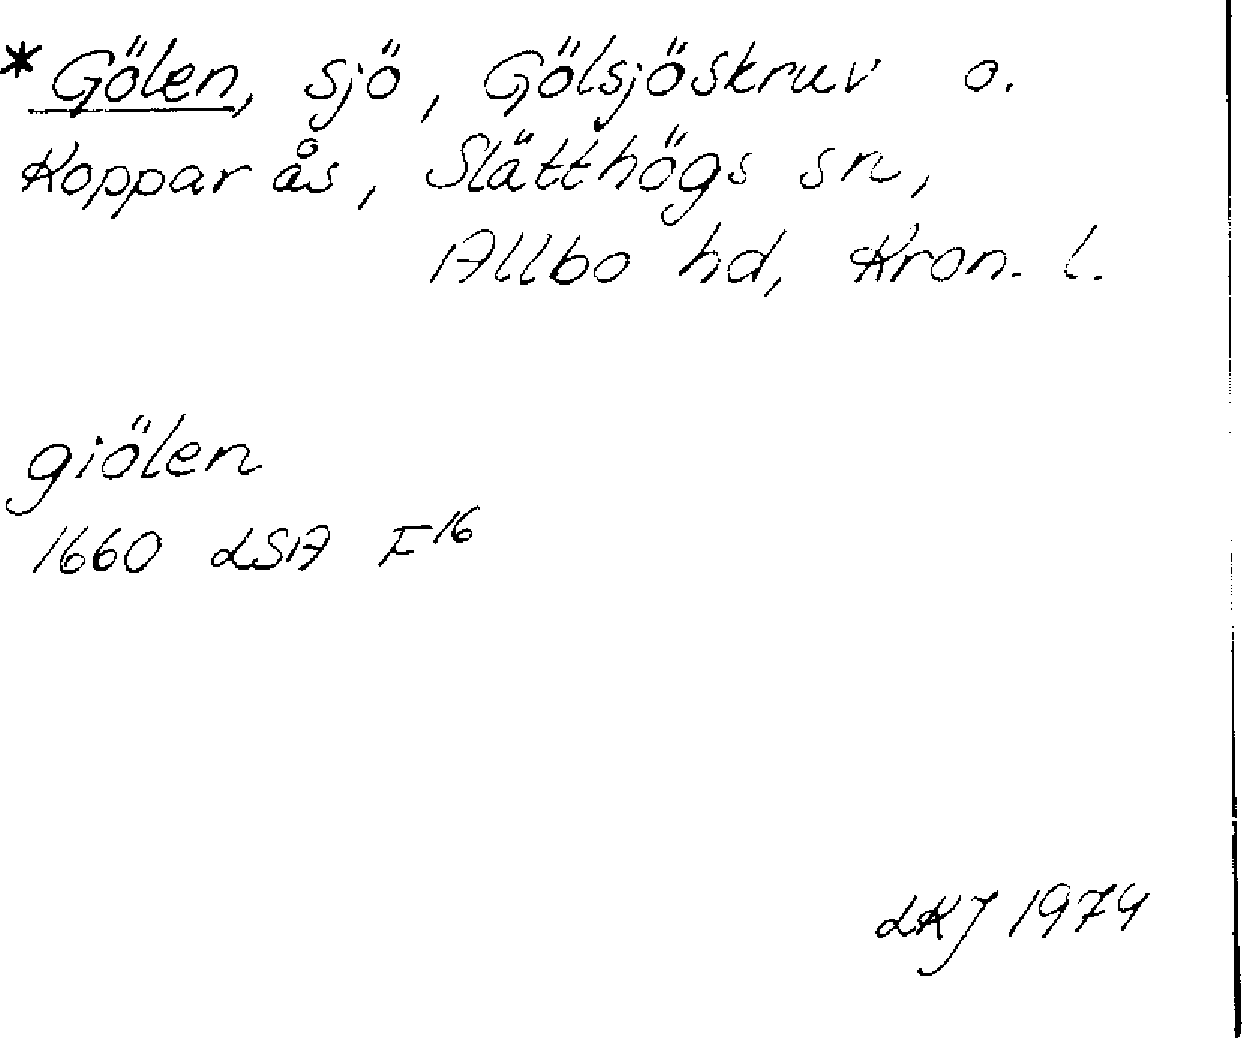 *Gölen, sjö, Gölsjöskruv o.
Kopparås, Slätthögs sn,
Allbo hd, Kron. l.
giölen
1660 LSA F16
LKJ 1974